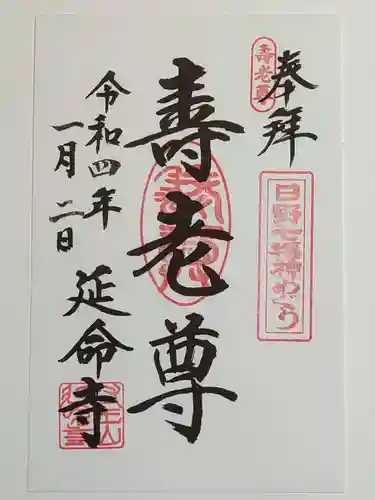 奉拝
壽老尊
日野七福神めぐり
壽老尊
令和四年
一月二日
延命寺